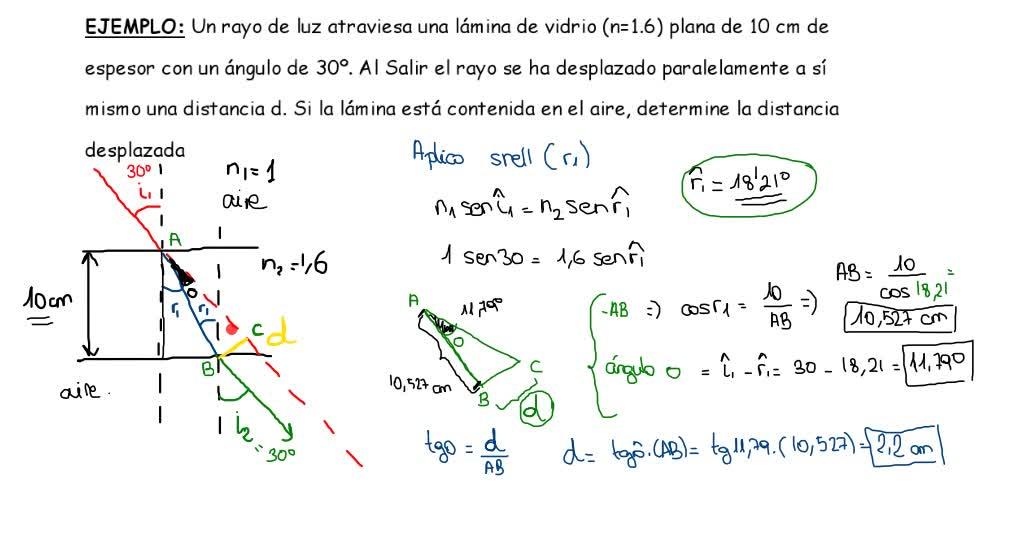 EJEMPLO: Un rayo de luz atraviesa una lámina de vidrio (n=1.6) plana de 10 cm de
espesor con un ángulo de 30º. Al Salir el rayo se ha desplazado paralelamente a sí
mismo una distancia d. Si la lámina está contenida en el aire, determine la distancia
desplazada
30º
i₁
n₁ = 1
aire
A
n₂ = 1,6
10cm
O
r₁
r₁
C
d
B
aire.
i₂ = 30º
Aplico snell (r₁)
n₁ sen î₁ = n₂ sen r̂₁
1 sen30 = 1,6 sen r̂₁
r̂₁ = 18'21º
A
11,79º
O
C
10,527 cm
B
d
-AB => cos r₁ = 10/AB =>
AB = 10/cos 18,21 =
10,527 cm
ángulo O = î₁ - r̂₁ = 30 - 18,21 = 11,79º
tg O = d/AB
d = tg ô.(AB) = tg 11,79.(10,527) = 2,2 cm